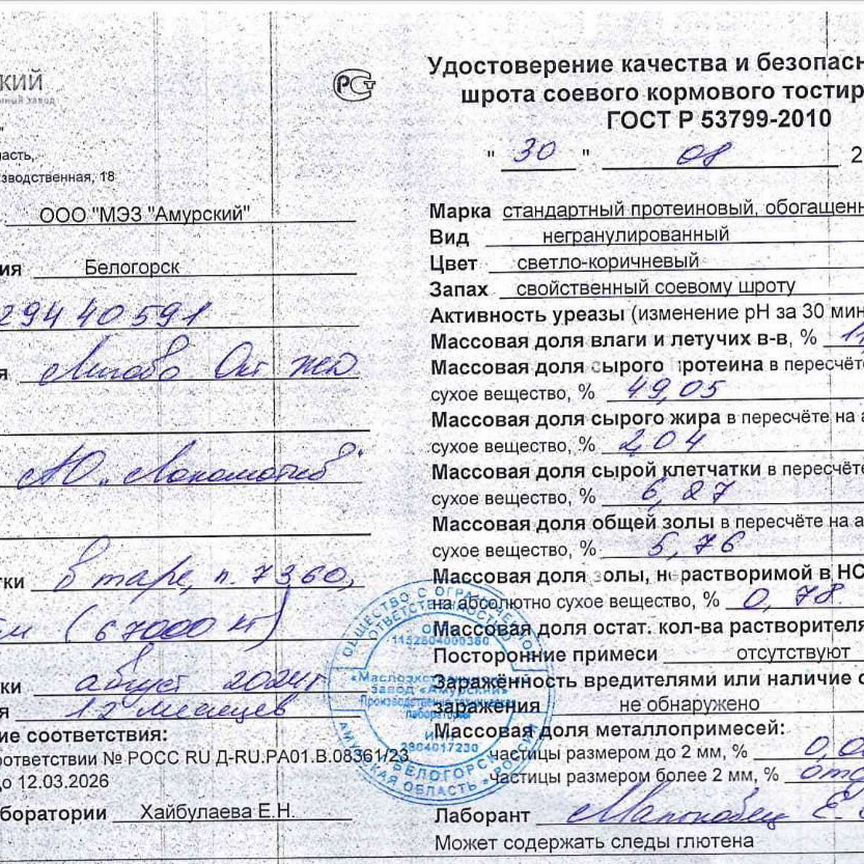 КИЙ
РСТ
асть,
зводственная, 18
ООО "МЭЗ "Амурский"
ия Белогорск
29440591
я Лигово Окт жд
АО "Локомотив"
тки в таре, п. 7360,
(67000 кг)
ки август 2024г
я 12 месяцев
ие соответствия:
ответствии № РОСС RU Д-RU.РА01.В.08361/23
до 12.03.2026
боратории Хайбулаева Е.Н.
Удостоверение качества и безопасн
шрота соевого кормового тостир
ГОСТ Р 53799-2010
" 30 " 08 2
Марка стандартный протеиновый, обогащенн
Вид негранулированный
Цвет светло-коричневый
Запах свойственный соевому шроту
Активность уреазы (изменение pH за 30 мин
Массовая доля влаги и летучих в-в, %
Массовая доля сырого протеина в пересчёте
сухое вещество, % 49,05
Массовая доля сырого жира в пересчёте на а
сухое вещество, % 2,04
Массовая доля сырой клетчатки в пересчёте
сухое вещество, % 6,27
Массовая доля общей золы в пересчёте на а
сухое вещество, % 5,76
Массовая доля золы, нерастворимой в НС
на абсолютно сухое вещество, % 0,78
Массовая доля остат. кол-ва растворителя
Посторонние примеси отсутствуют
Заражённость вредителями или наличие с
заражения не обнаружено
Массовая доля металлопримесей:
частицы размером до 2 мм, % 0,0
частицы размером более 2 мм, % отс
Лаборант
Может содержать следы глютена
ОБЩЕСТВО С ОГРАНИЧЕННОЙ
ОТВЕТСТВЕННОСТЬЮ
«Маслоэкстракционный
завод «Амурский»
Производственно-
лаборатория
2804017230
БЕЛОГОРСК
АМУРСКАЯ ОБЛАСТЬ РОССИЯ